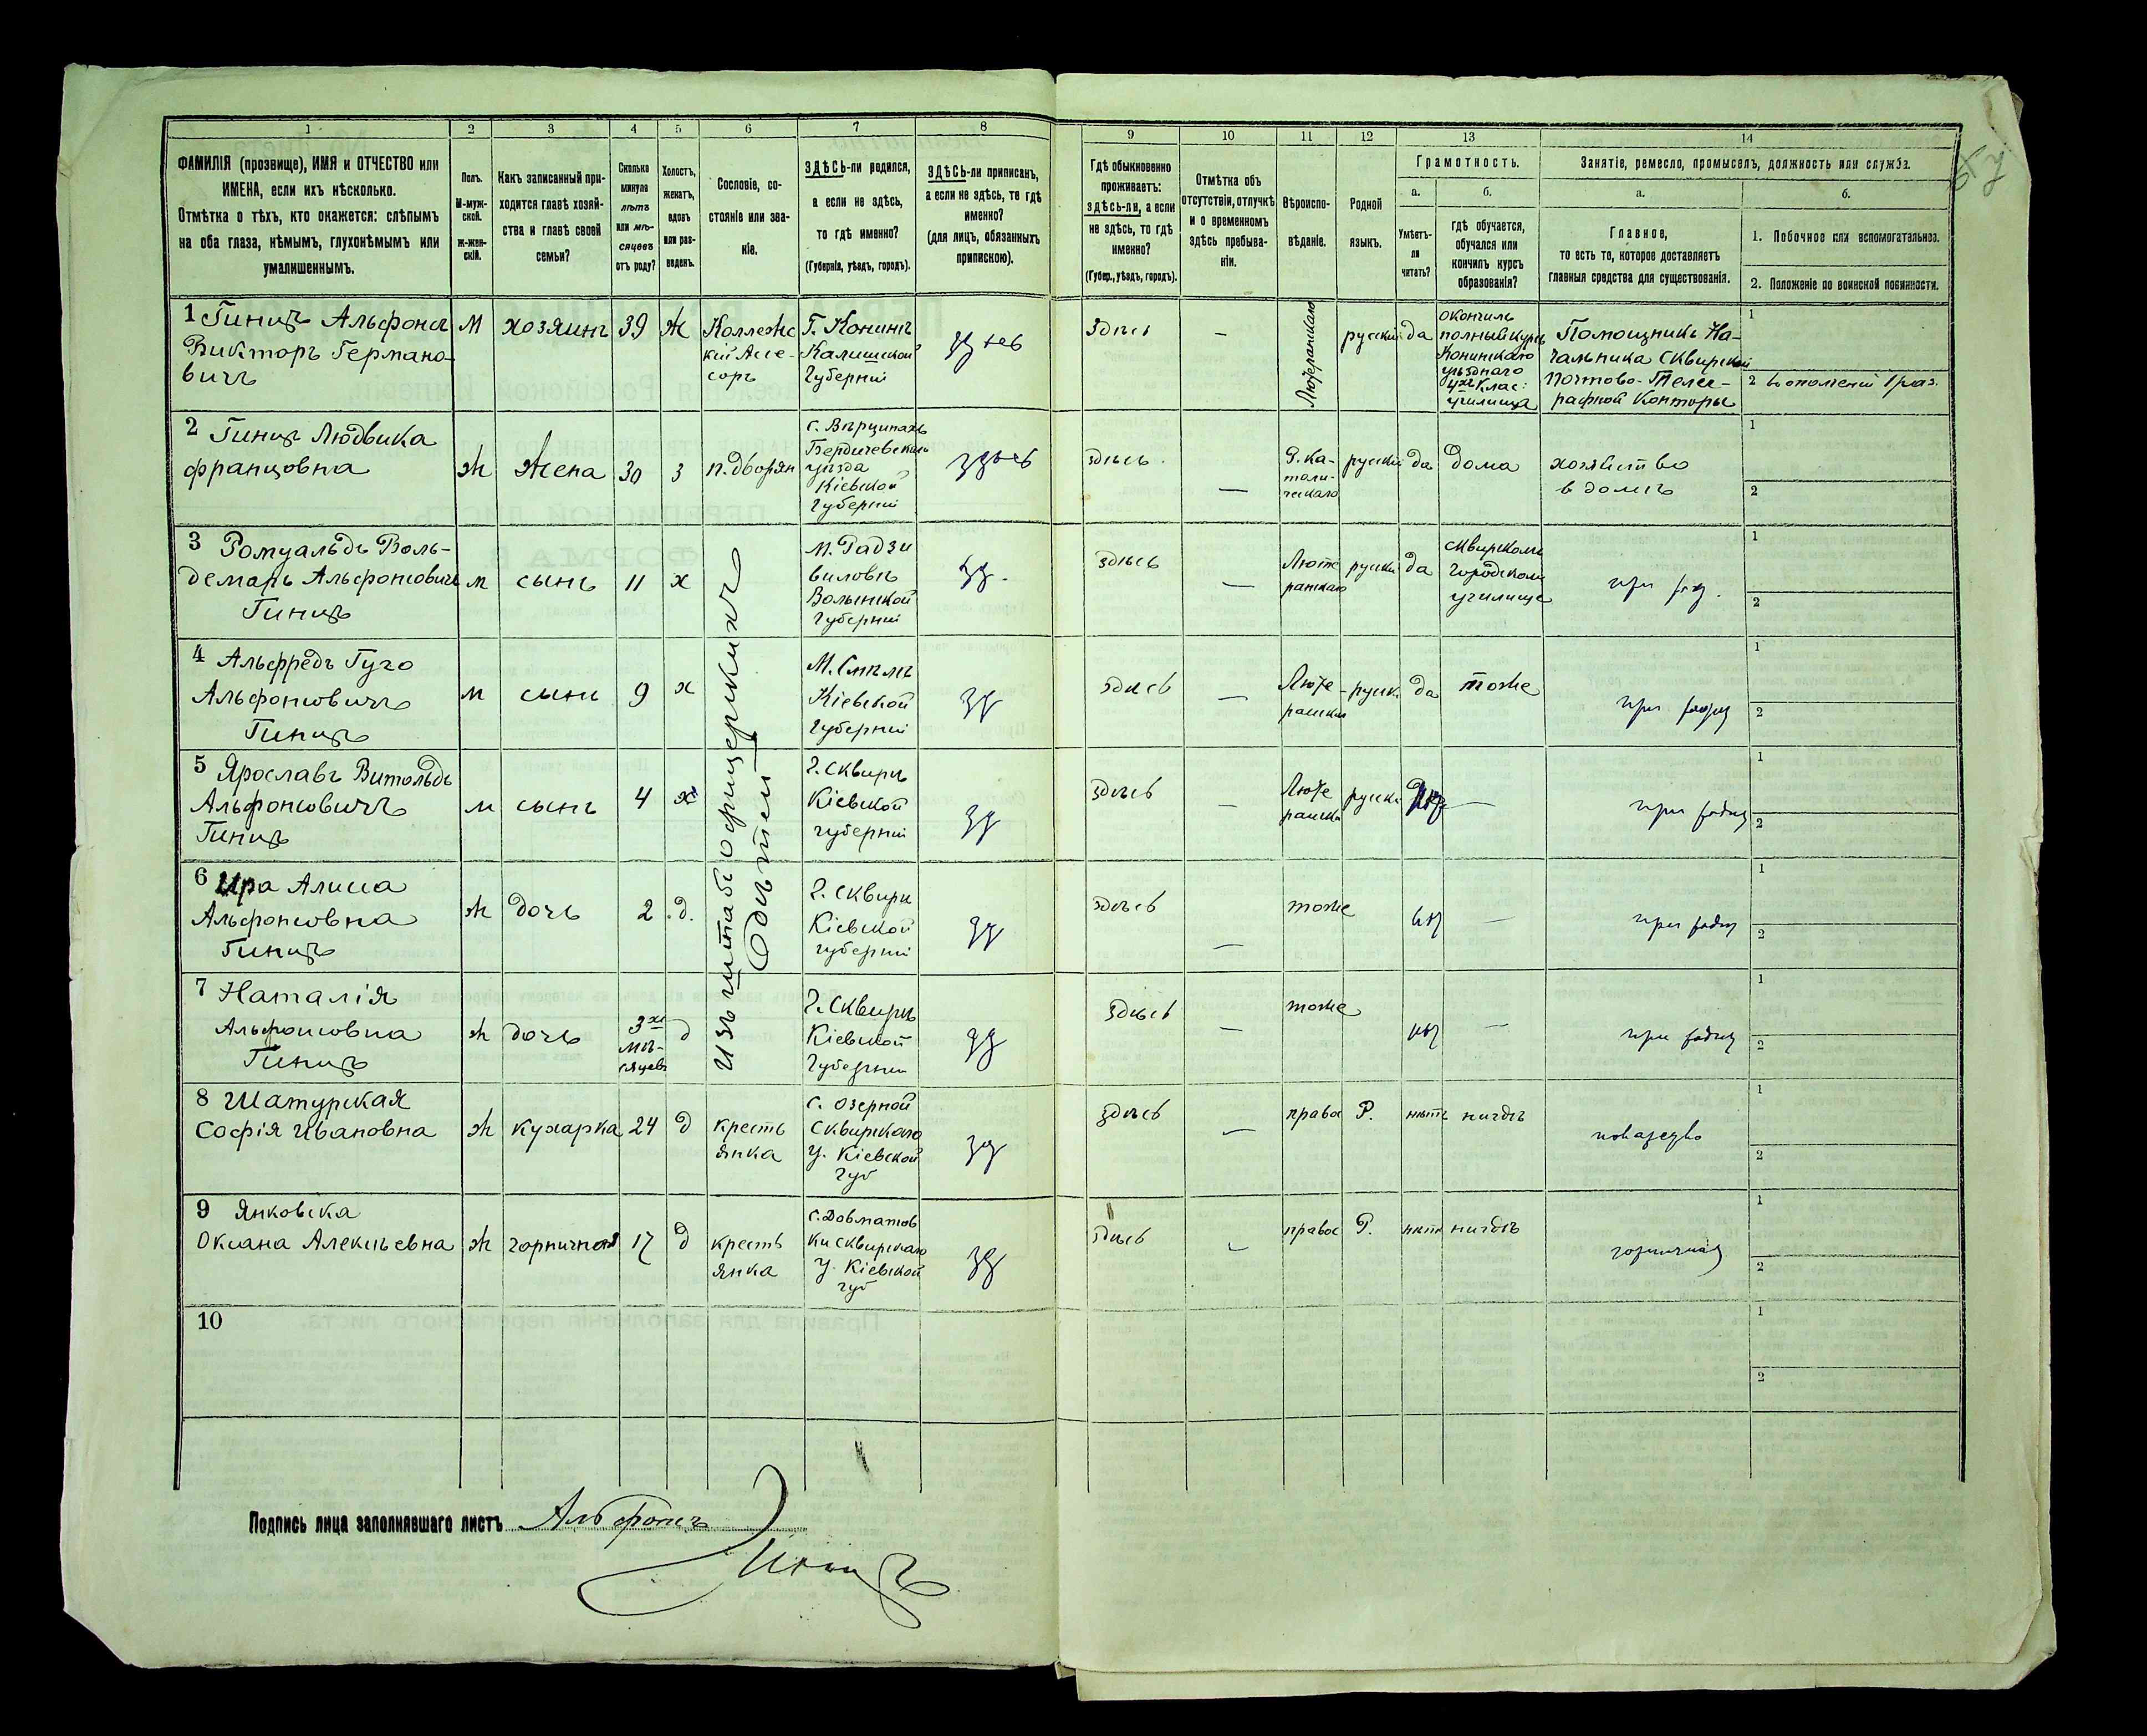 1 2 3 4 5 6 7 8 9 10 11 12 13 14
ФАМИЛІЯ (прозвище), ИМЯ и ОТЧЕСТВО или
ИМЕНА, если ихъ нѣсколько.
Отмѣтка о тѣхъ, кто окажется: слѣпымъ
на оба глаза, нѣмымъ, глухонѣмымъ или
умалишеннымъ.
Полъ.
М-муж-
ской.
Ж-жен-
скій.
Какъ записанный при-
ходится главѣ хозяй-
ства и главѣ своей
семьи?
Сколько
минуло
лѣтъ
или мѣ-
сяцевъ
отъ роду?
Холостъ,
женатъ,
вдовъ
или раз-
веденъ.
Сословіе, со-
стояніе или зва-
ніе.
ЗДѢСЬ-ли родился,
а если не здѣсь,
то гдѣ именно?
(Губернія, уѣздъ, городъ).
ЗДѢСЬ-ли приписанъ,
а если не здѣсь, то гдѣ
именно?
(для лицъ, обязанныхъ
припискою).
Гдѣ обыкновенно
проживаетъ:
здѣсь-ли, а если
не здѣсь, то гдѣ
именно?
(Губер., уѣздъ, городъ).
Отмѣтка объ
отсутствіи, отлучкѣ
и о временномъ
здѣсь пребыва-
ніи.
Вѣроиспо-
вѣданіе.
Родной
языкъ.
Грамотность.
а.
Умѣетъ-
ли
читать?
б.
гдѣ обучается,
обучался или
кончилъ курсъ
образованія?
Занятіе, ремесло, промыселъ, должность или служба.
а.
Главное,
то есть то, которое доставляетъ
главныя средства для существованія.
б.
1. Побочное или вспомогательное.
2. Положеніе по воинской повинности.
1 Гинцъ Альфонсъ
Викторъ Германо-
вичъ
М
хозяинъ
39
Ж
Коллежс
кій Ассе-
соръ
Г. Конинъ
Калишской
Губерніи
здѣсь
Здѣсь
—
Лютеранскаго
русскій
да
окончилъ
полный курсъ
Конинскаго
уѣзднаго
4хъ клас:
училища
Помощникъ На-
чальника Сквирской
Почтово-Телег-
рафной Конторы
1
2
2 Гинцъ Людвика
Францовна
Ж
Жена
30
з
п. дворян
Бердичевскаго
уѣзда
Кіевской
Губерніи
здѣсь
здѣсь
—
Р. Ка-
толи-
ческаго
русскій
да
дома
хозяйство
в домѣ
1
2
3 Ромуальдъ Воль-
демаръ Альфонсовичъ
Гинцъ
м
сынъ
11
х
Изъ штабъ офицерскихъ
Дѣтей
м. Радзи
виловъ
Волынской
Губерніи
зд.
здѣсь
—
Люте
ранскаго
русскій
да
Сквирском
городском
училище
при род.
1
2
4 Альфредъ Гуго
Альфонсовичъ
Гинцъ
м
сынъ
9
х
М. Смѣлѣ
Кіевской
Губерніи
зд
здѣсь
—
Люте-
ранскаго
русск.
да
тоже
при родит
1
2
5 Ярославъ Витольдъ
Альфонсовичъ
Гинцъ
м
сынъ
4
х
г. Сквирѣ
Кіевской
губерніи
зд
здѣсь
—
Люте
ранска
русски
—
при родит
1
2
6 Ира Алиса
Альфонсовна
Гинцъ
Ж
дочь
2
д.
г. Сквирѣ
Кіевской
губерніи
зд
здѣсь
—
тоже
—
при родит
1
2
7 Наталія
Альфонсовна
Гинцъ
Ж
дочь
3хъ
мѣ-
сяцевъ
д
г. Сквирѣ
Кіевской
Губерніи
зд
здѣсь
—
тоже
—
при родит
1
2
8 Шатурская
Софія Ивановна
Ж
кухарка
24
д
кресть
янка
с. Озерной
Сквирскаго
у. Кіевской
губ
зд
здѣсь
—
правос
Р.
нѣтъ
нигдѣ
1
2
9 Янковска
Оксана Алексѣевна
Ж
горничная
17
д
кресть
янка
с. Довматов
ки Сквирскаго
у. Кіевской
губ
зд
здѣсь
—
правос
Р.
нѣтъ
нигдѣ
горничная
1
2
10
1
2
Подпись лица заполнявшаго листъ Альфонсъ
Гинцъ